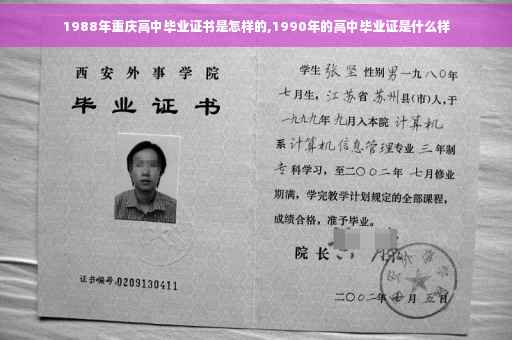 1988年重庆高中毕业证书是怎样的,1990年的高中毕业证是什么样
西安外事学院
毕业证书
证书编号:0209130411
学生 张坚 性别 男 一九八〇年
七月生，江苏省 苏州县(市)人,于
一九九九年 九月入本院 计算机
系 计算机信息管理 专业 三 年制
专科学习，至二〇〇二年 七月修业
期满，学完教学计划规定的全部课程，
成绩合格，准予毕业。
院长
二〇〇二年 月 五日